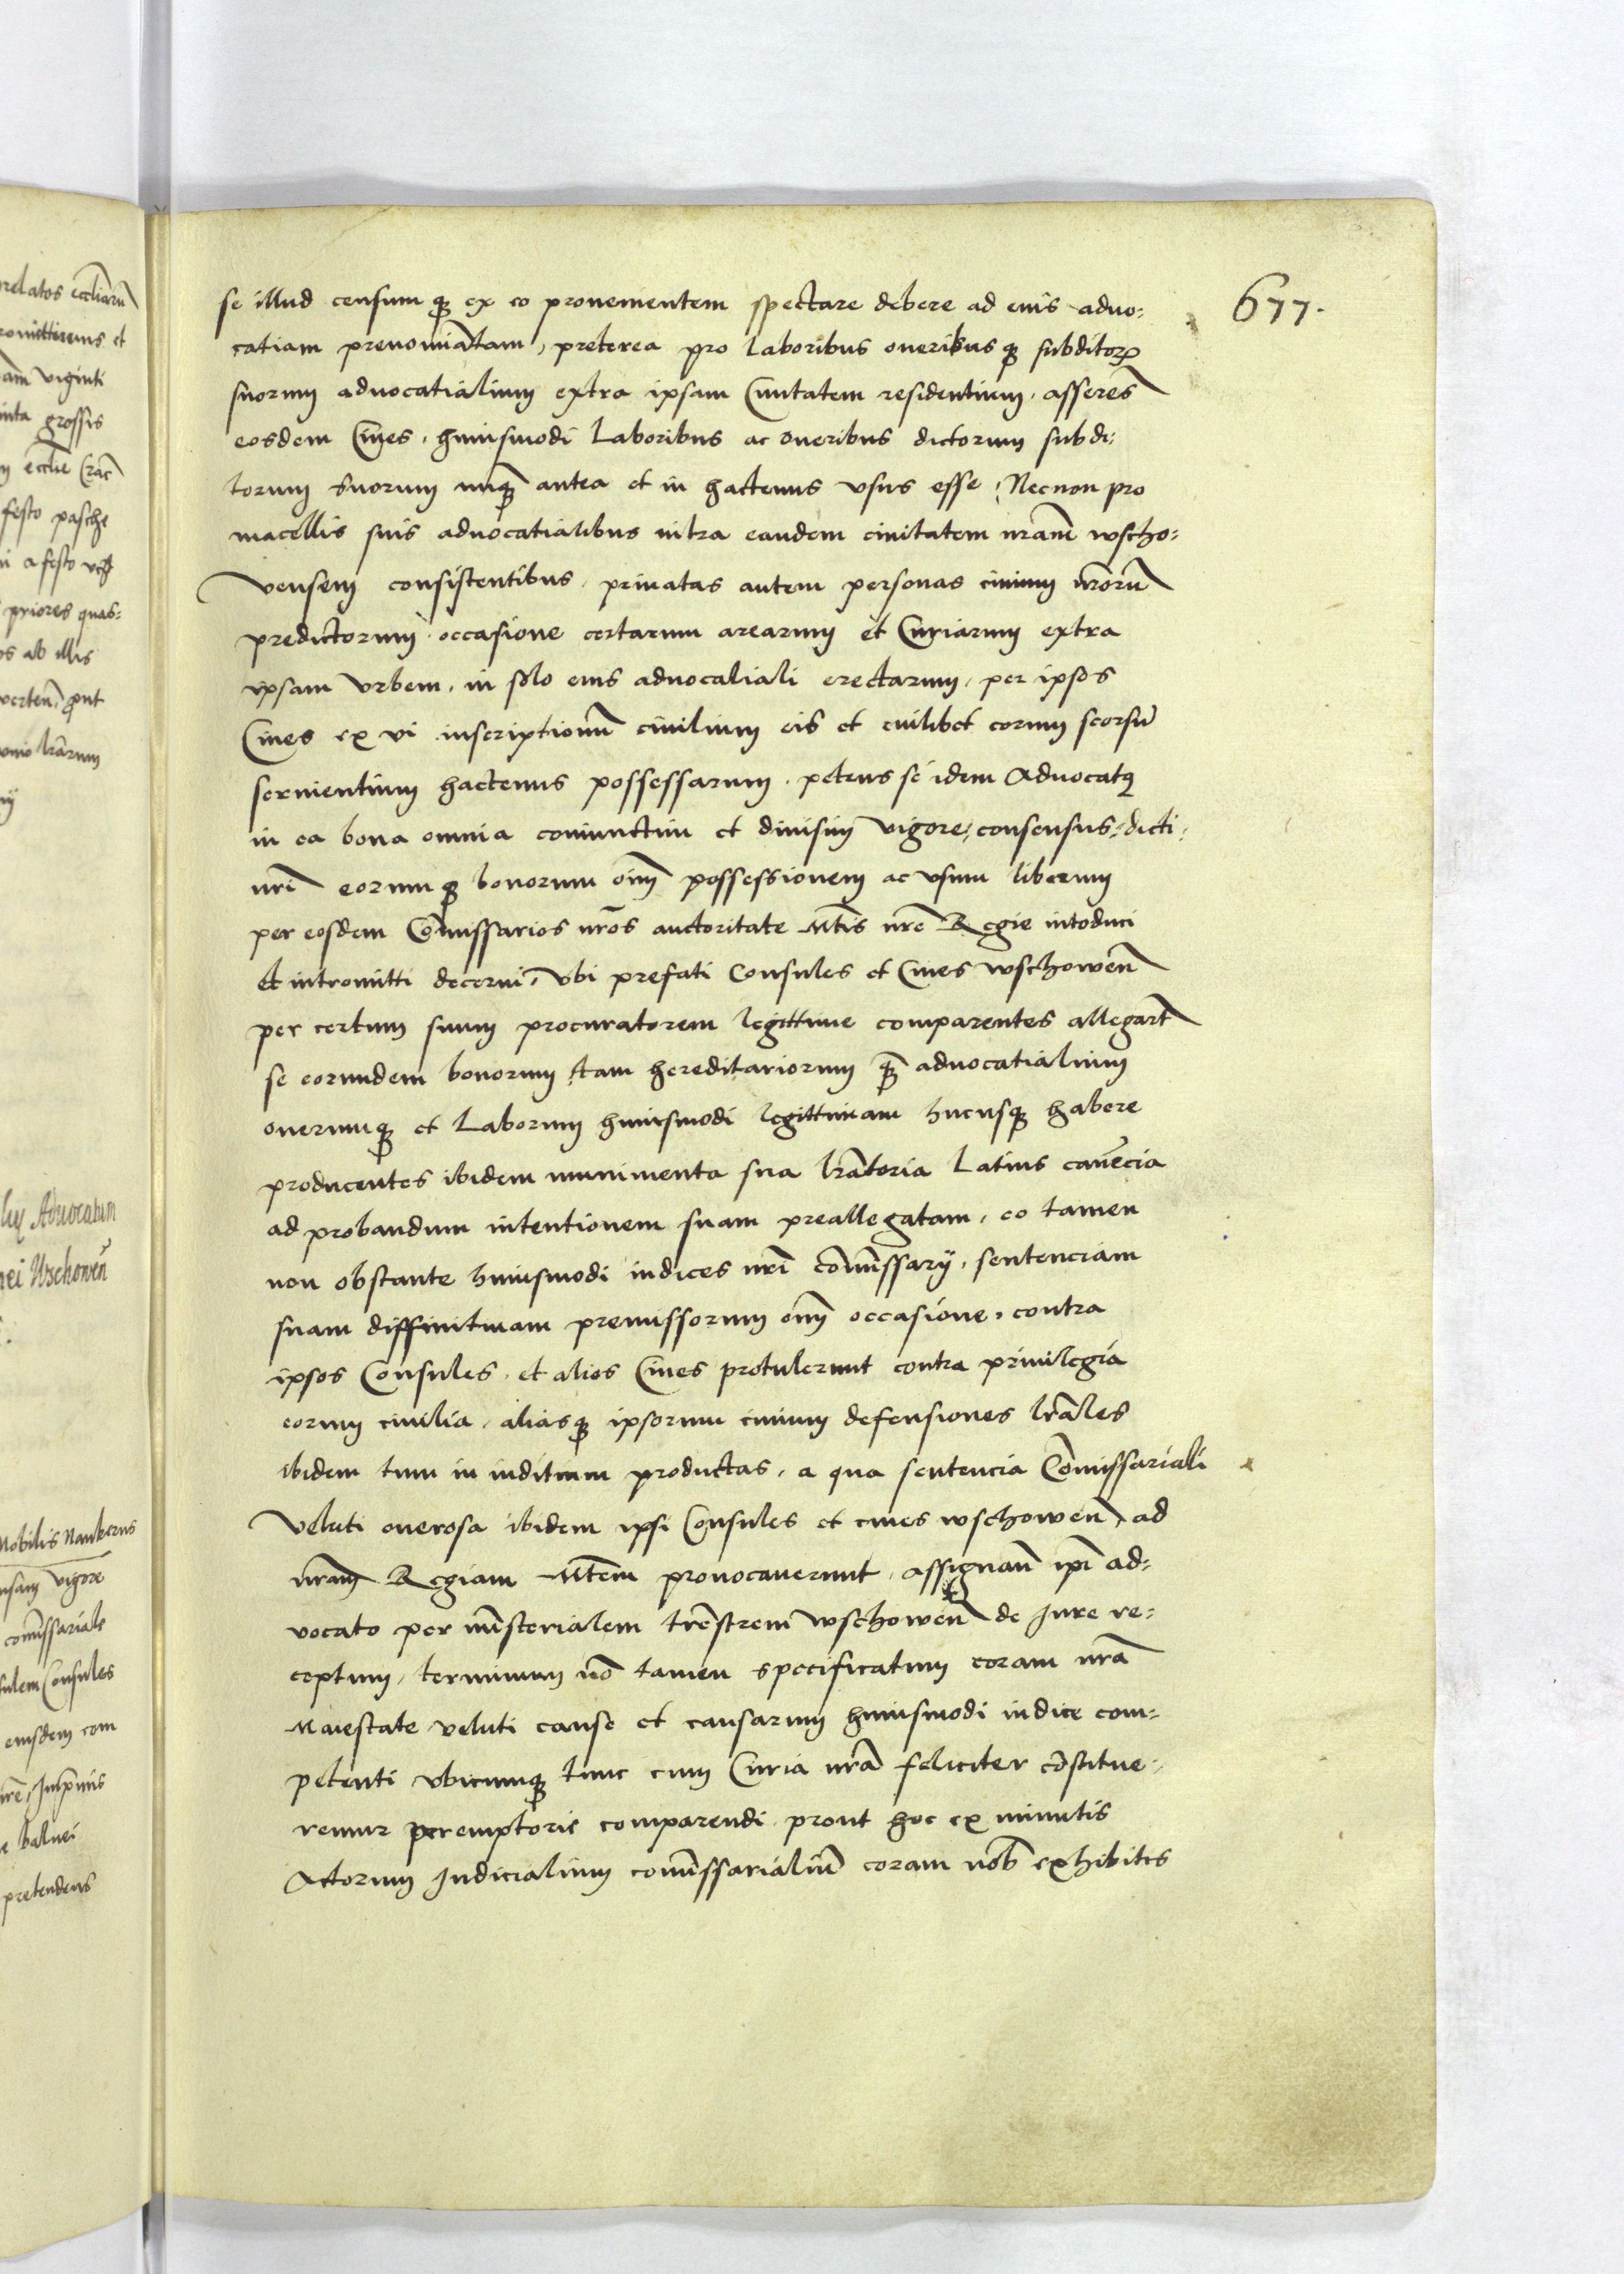 677.
se illud censumq̃ ex eo provenientem spectare debere ad eius advo:
catiam prenominãtam, preterea pro laboribus oneribusq̃ subditorꝝ
suorum advocatialium extra ipsam Civitatem residentium, asserẽs
eosdem Cives, huiusmodi laboribus ac oneribus dictorum subdi:
torum suorum nunq̃ antea et in hactenus usus esse, Necnon pro
macellis suis advocatialibus intra eandem civitatem nram̃ wscho:
vensem consistentibus, privatas autem personas civium nrorũ
predictorum, occasione certarum arearum et Curiarum extra
ipsam Urbem, in solo eius advocatiali erectarum, per ipsos
Cives ex vi inscriptionũ civilium eis et cuilibet eorum seorsũ
servientium hactenus possessarum, petens se idem Advocatꝰ
in ea bona omnia coniunctim et divisim vigore, consensus, dicti,
nrĩ eorumq̃ bonorum oĩm possessionem ac usum liberum
per eosdem Cõmissarios nrõs auctoritate Mtĩs nrẽ Regie intoduci
et intromitti decerni, ubi prefati Consules et Cives wschoweñ
per certum suum procuratorem legittime comparentes allegarũt
se eorundem bonorum tam hereditariorum q̃ advocatialium
onerumq̃ et Laborum huiusmodi legittimam hucusq̃ habere
producentes ibidem munimenta sua lrãtoria latius cavẽcia
ad probandum intentionem suam preallegatam, eo tamen
non obstante huiusmodi iudices nrĩ com̃issarÿ, sentenciam
suam diffinitivam premissorum oĩm occasione, contra
ipsos Consules, et alios Cives protulerunt contra privilegia
eorum civilia, aliasq̃ ipsorum civium defensiones lrãles
ibidem tum in iuditium productas, a qua sentencia Cõmissariali
veluti onerosa ibidem ipsi Consules et cives wschoweñ, ad
nrãm Regiam Mtẽm provocaverunt, assignañ ipĩ ad:
vocato per miñsterialem trẽstrem wschoweñ de Jure re:
ceptum, terminum nõ tamen specificatum coram nrã
Maiestate veluti cause et causarum huiusmodi iudice com:
petenti ubicumq̃ tunc cum Curia nrã feliciter cõstitue:
remur peremptorie comparendi prout hoc ex minutis
Actorum Judicialium com̃issarialiũ coram nob̃ exhibitis